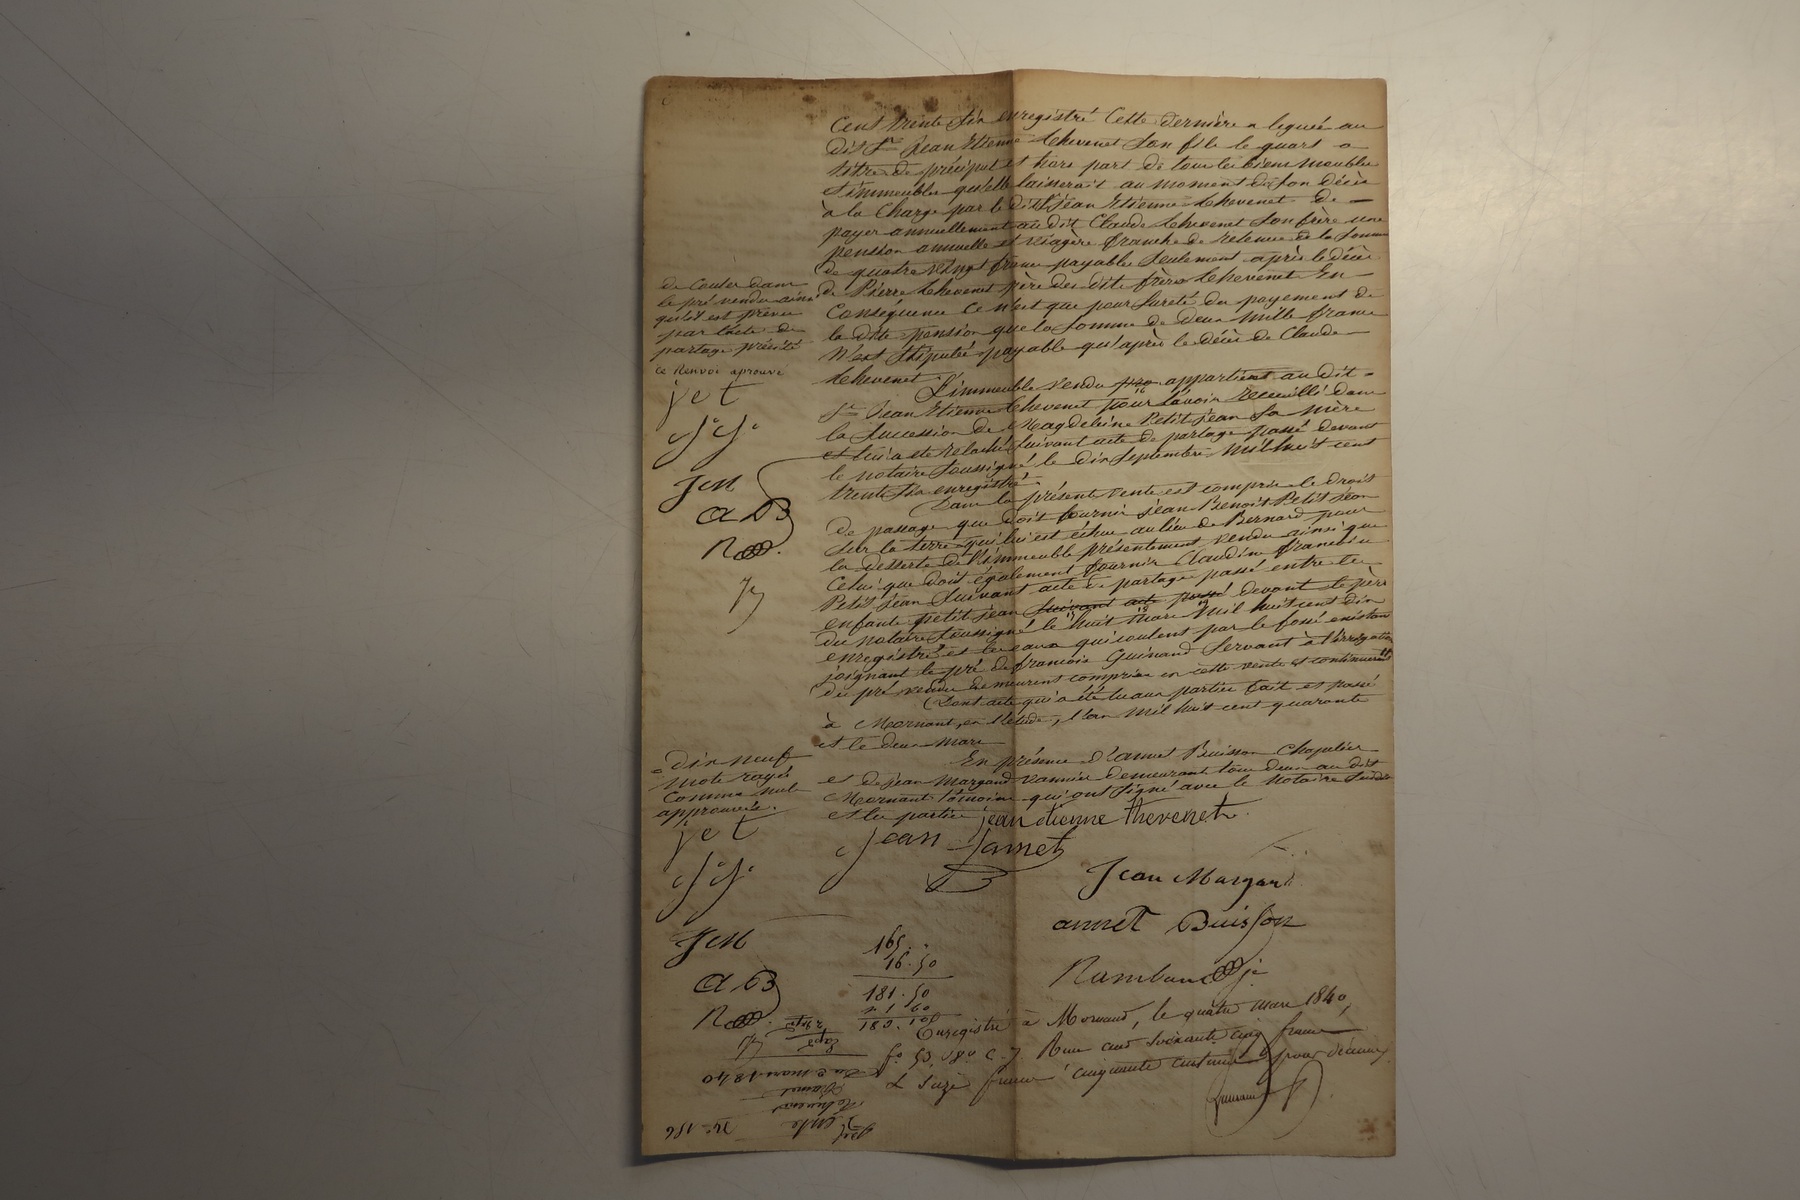 Cent trente six enregistré Cette dernière a legué au
dit Sr Jean Etienne thevenet Son fils le quart a
titre de préciput et hors part de tous les biens meubles
& immeubles qu'elle laisserait au moment de son décès
à la Charge par le dit Jean Etienne thevenet de
payer annuellement au dit Claude thevenet Son frère une
pension annuelle et viagère franche de retenue de la Somme
de quatre vingt francs payable Seulement après le décès
de Pierre thevenet père des dits frères thevenet En
Conséquence Ce n'est que pour Sureté du payement de
la dite pension que la Somme de deux mille francs
n'est Stipulée payable qu'après le décès de Claude
thevenet L'immeuble vendu appartient au dit
Sr Jean Etienne thevenet pour l'avoir recueilli dans
la Succession de Magdeleine Petit jean Sa mère
et lui a été relaché Suivant acte de partage passé devant
le notaire Soussigné le dix Septembre mil huit cent
trente Six enregistré
Dans la présente vente est compris le droit
de passage que doit fournir Jean Benoit Petit jean
Sur la terre qui lui est échue au lieu de Bernard pour
la desserte de l'immeuble présentement vendu ainsi que
Celui que doit également fournir Claudine francoise
Petit jean Suivant acte de partage passé entre les
enfants petit jean Suivant acte passé devant le père
du notaire Soussigné le huit Mars mil huit cent dix
enregistré et les eaux qui coulent par le fossé existant
joignant le pré de francois Guinand Servant à l'irrigation
du pré vendu demeurent comprises en cette vente et continueront
de Couler dans
le pré vendu ainsi
qu'il est prévu
par l'acte de
partage précité
Ce Renvoi aprouvé
j e t
J J
J M
A B
R
Dont acte qui a été lu aux parties fait et passé
à Mornant, en l'étude, l'an mil huit cent quarante
et le deux mars
En présence d'annet Buisson Chapelier
et de jean Margand vannier demeurant tous deux au dit
Mornant témoins qui ont Signé avec le notaire Susdit
et les parties
= dix neuf
mots rayés
Comme nuls
approuvés.
j e t
J J
J M
A B
R
jean etienne thevenet
Jean Jamet
Jean Margand
annet Buisson
165. "
16. 50
181. 50
Enregistré à Mornant, le quatre mars 1840,
fo 53 Vo C. 7. Reçu cent soixante cinq francs
& Seize francs cinquante centimes pour décimes
Du 2 mars 1840
Vente
thevenet
Jamet
No 156